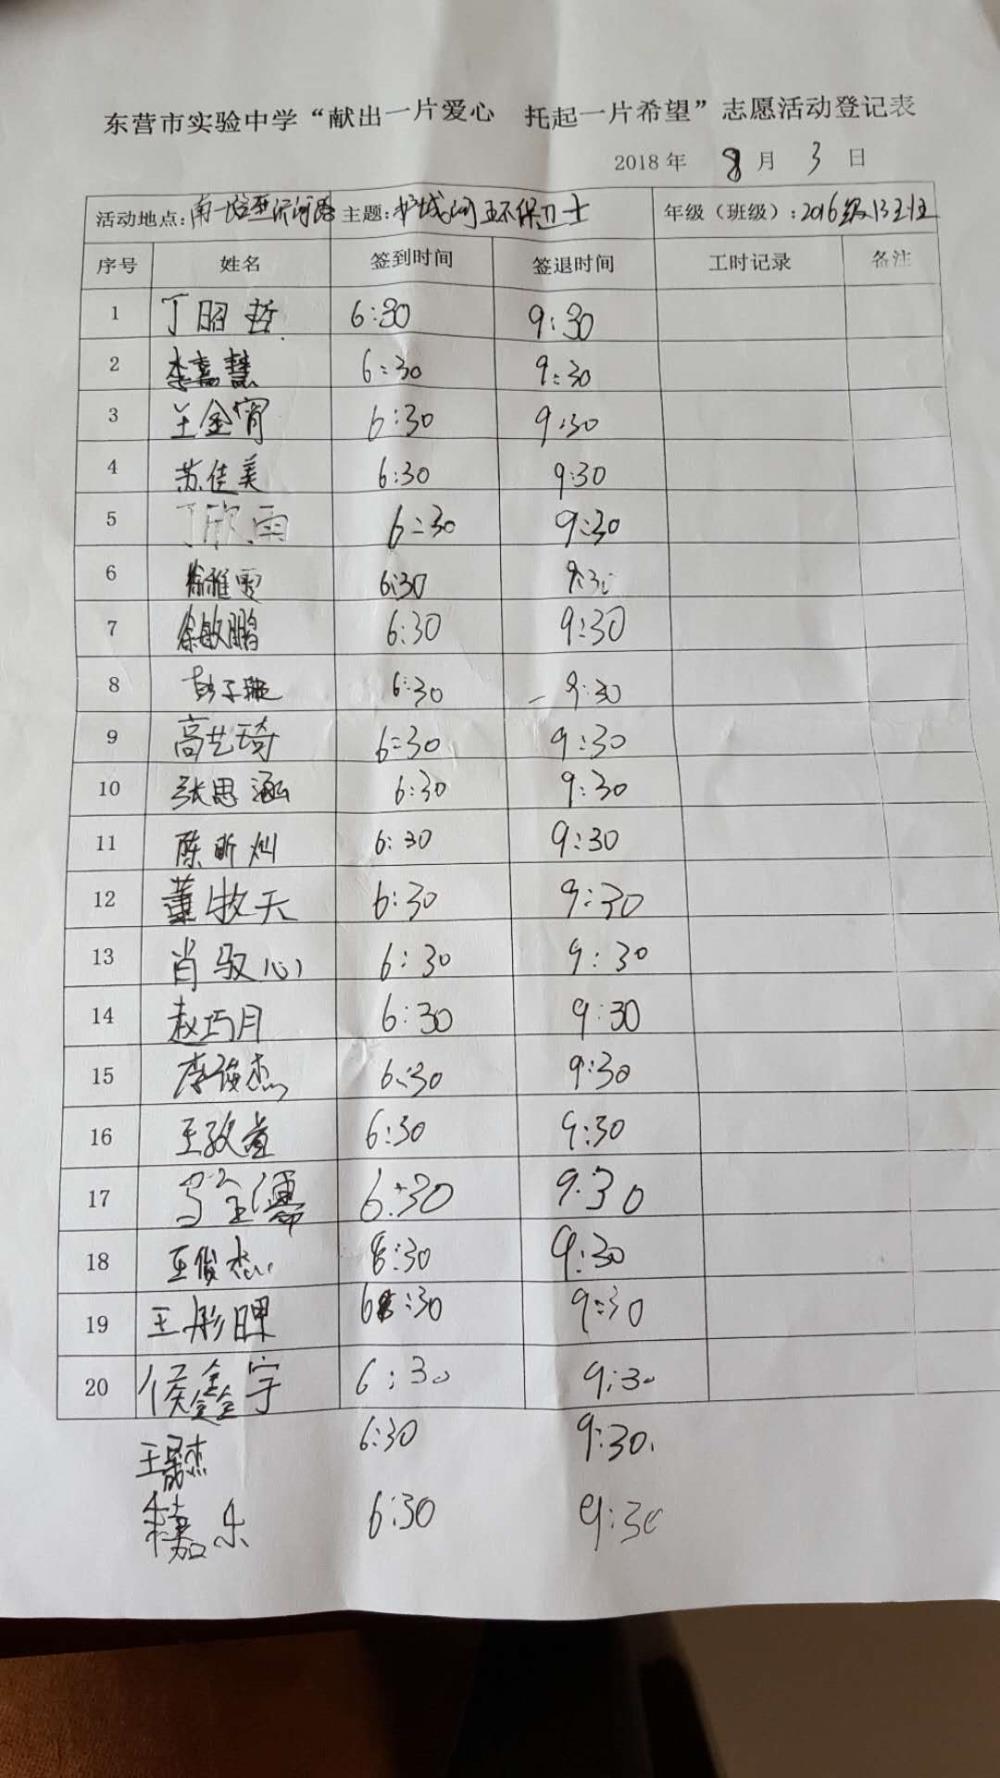 东营市实验中学“献出一片爱心 托起一片希望”志愿活动登记表
2018年 8月 3日
活动地点:南一路至济河路 主题:护城河环保卫士 年级（班级）:2016级13班
序号 姓名 签到时间 签退时间 工时记录 备注
1 丁昭哲 6:30 9:30
2 李嘉慧 6:30 9:30
3 王金宵 6:30 9:30
4 苏佳美 6:30 9:30
5 丁欣雨 6:30 9:30
6 徐雅雯 6:30 9:30
7 徐敏鹏 6:30 9:30
8 彭子璇 6:30 9:30
9 高艺琦 6:30 9:30
10 张思涵 6:30 9:30
11 陈昕灿 6:30 9:30
12 董牧天 6:30 9:30
13 肖驭心 6:30 9:30
14 赵巧月 6:30 9:30
15 李俊杰 6:30 9:30
16 6:30 9:30
17 6:30 9:30
18 王俊杰 6:30 9:30
19 王彤暄 6:30 9:30
20 侯鑫宇 6:30 9:30
6:30 9:30
6:30 9:30